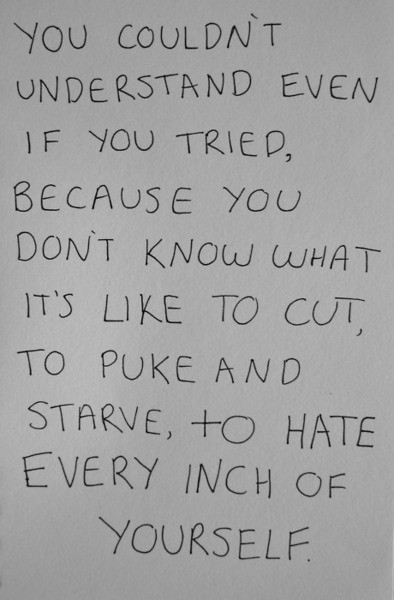 YOU COULDN'T
UNDERSTAND EVEN
IF YOU TRIED,
BECAUSE YOU
DON'T KNOW WHAT
IT'S LIKE TO CUT,
TO PUKE AND
STARVE, TO HATE
EVERY INCH OF
YOURSELF.